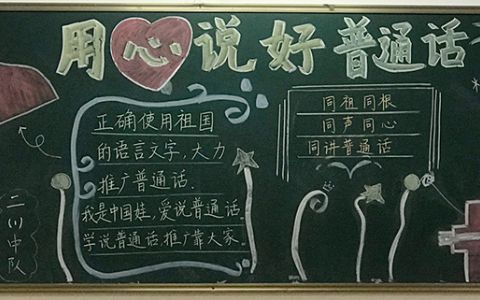 用心说好普通话
正确使用祖国
的语言文字，大力
推广普通话.
我是中国娃，爱说普通话，
学说普通话，推广靠大家。
同祖同根
同声同心
同讲普通话
二川中队